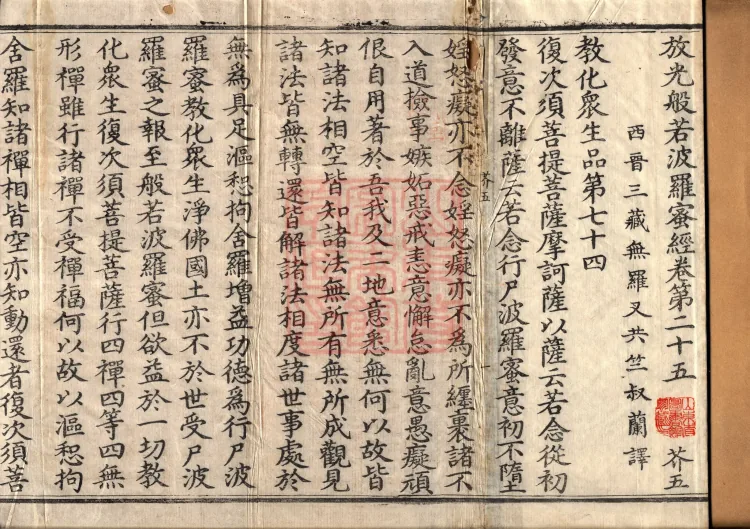 放光般若波羅蜜經卷第二十五 芥五
西晉三藏無羅叉共竺叔蘭譯
教化衆生品第七十四
復次須菩提菩薩摩訶薩以薩云若念從初
發意不離薩云若念行尸波羅蜜意初不墮
婬怒癡亦不念婬怒癡亦不為所纏裹諸不
芥五
入道撿事嫉妬惡戒恚意懈怠亂意愚癡頑
佷自用著於吾我及二地意悉無何以故皆
知諸法相空皆知諸法無所有無所成觀見
諸法皆無轉還皆解諸法相度諸世事處於
無為具足漚惒拘舍羅增益功德為行尸波
羅蜜教化衆生淨佛國土亦不於世受尸波
羅蜜之報至般若波羅蜜但欲益於一切教
化衆生復次須菩提菩薩行四禪四等四無
形禪雖行諸禪不受禪福何以故以漚惒拘
舍羅知諸禪相皆空亦知動還者復次須菩